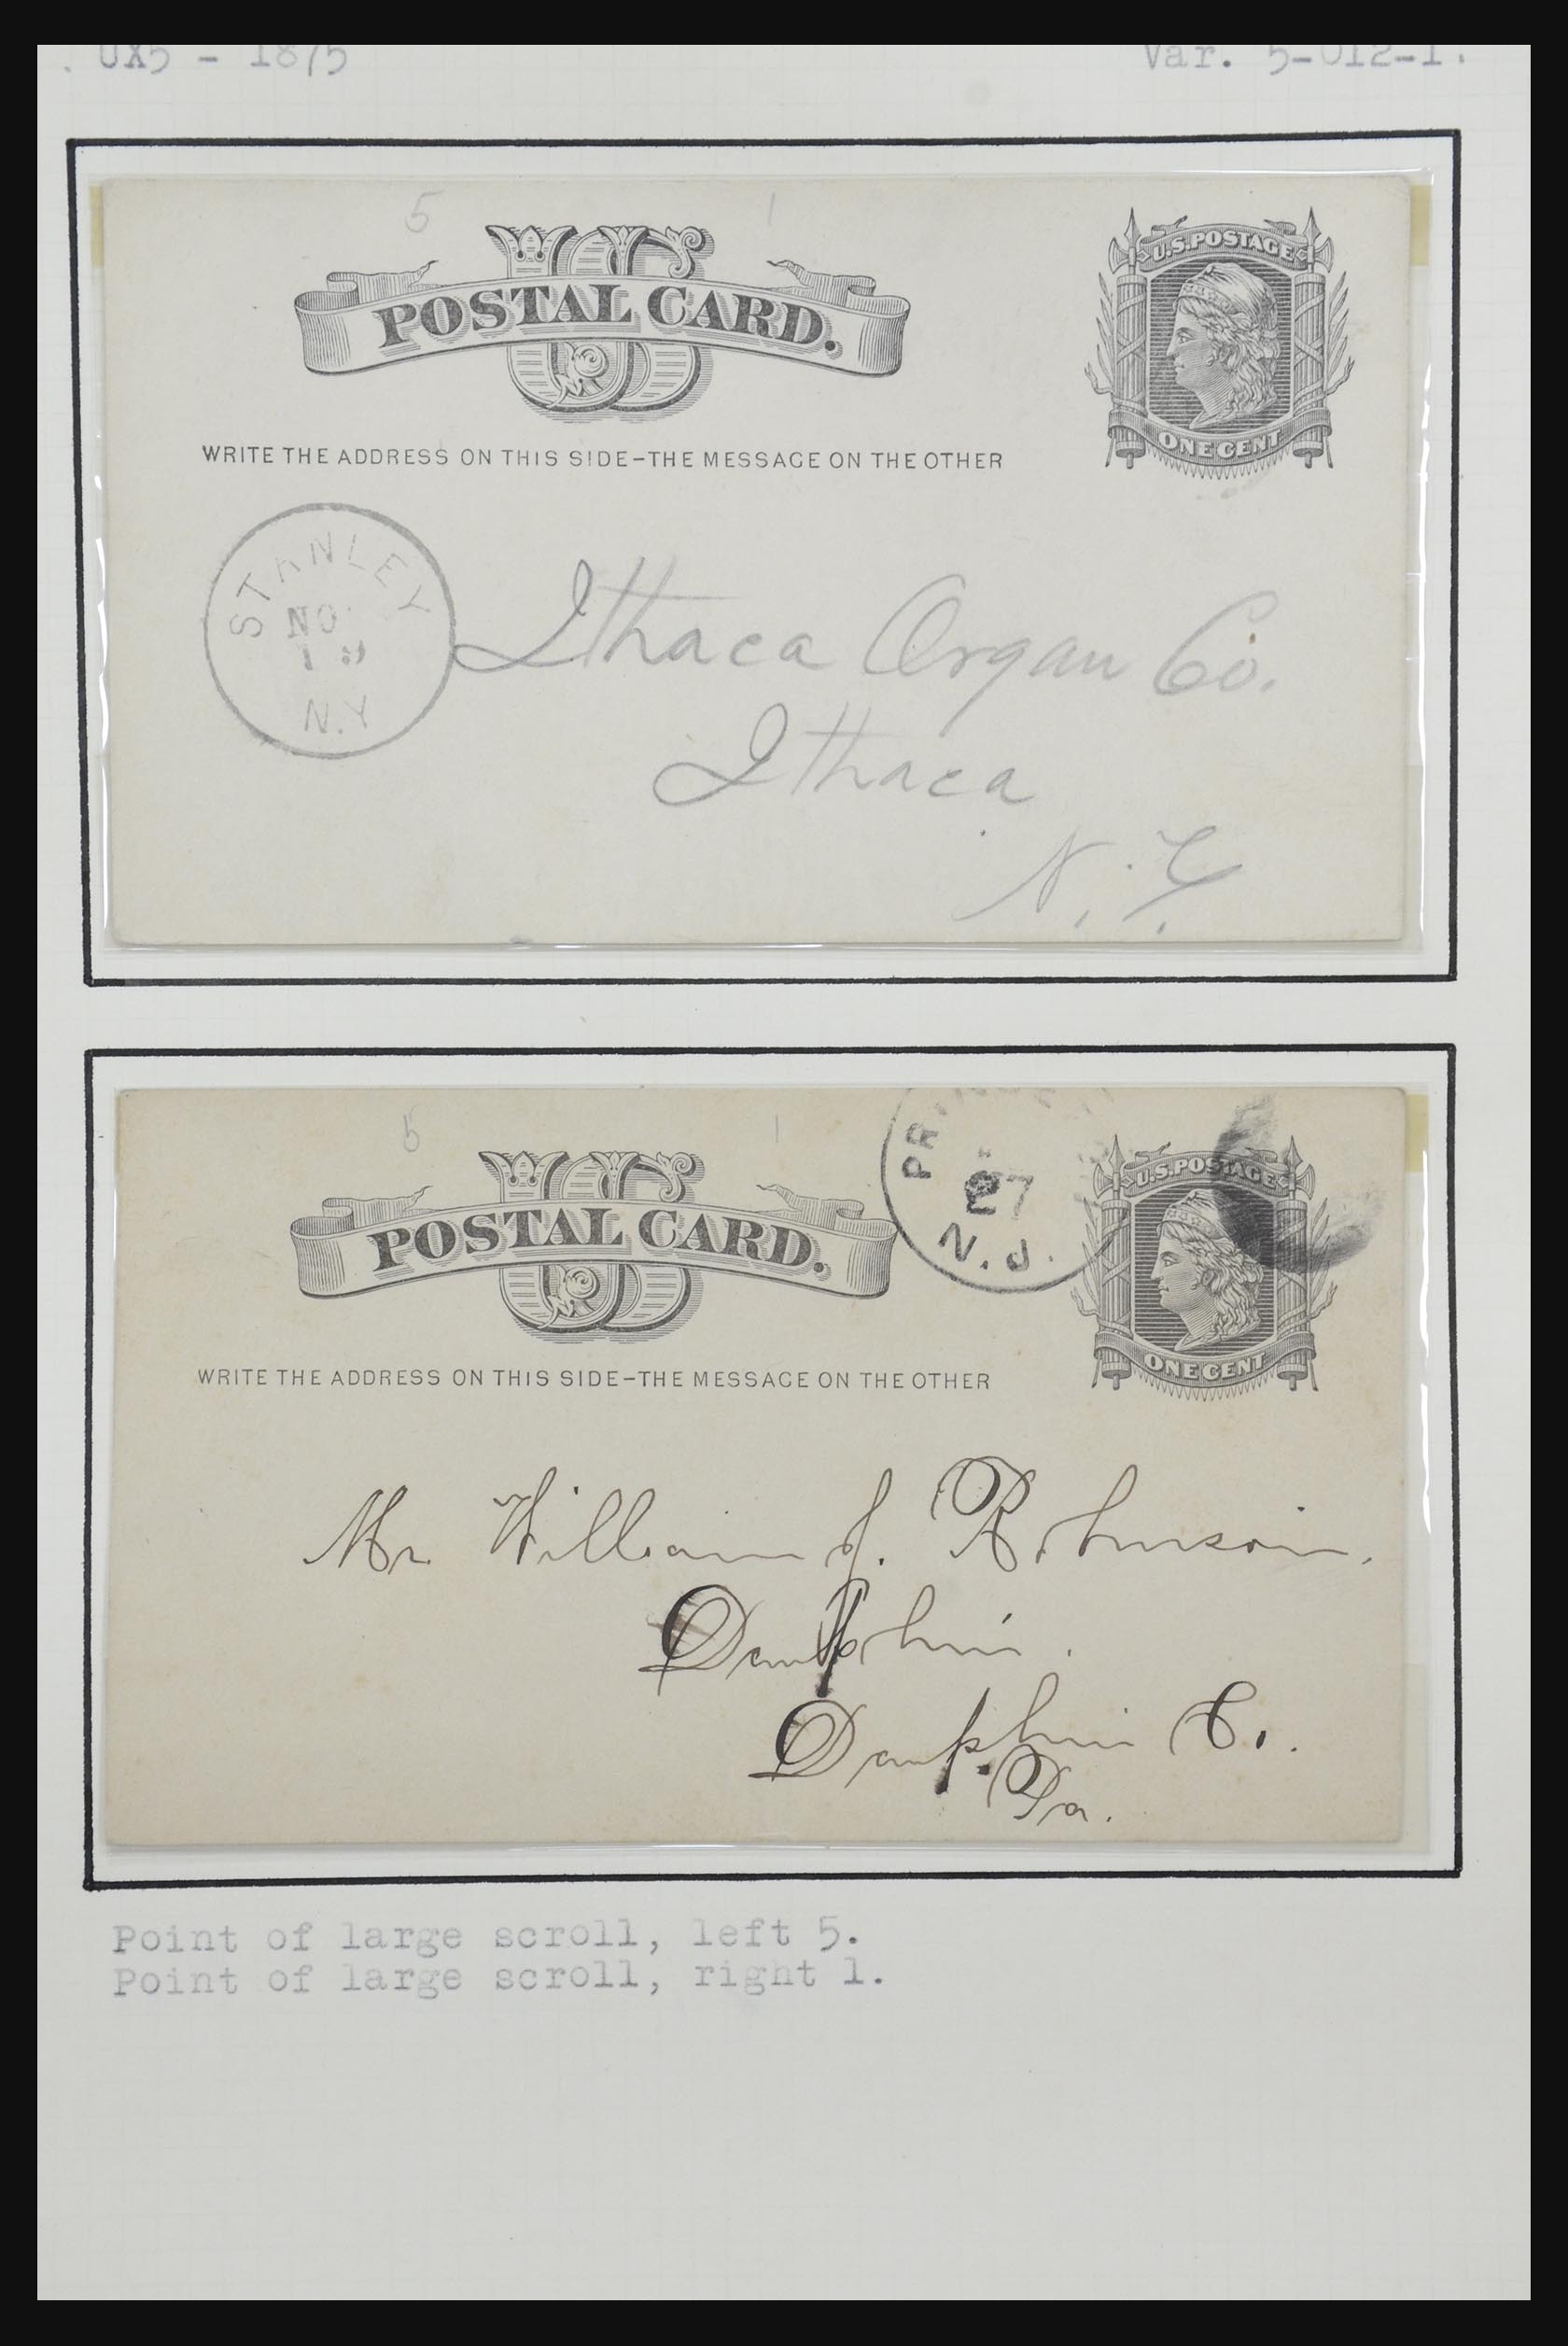 UX5 - 1875 Var. 5-012-1.
5 1
US
POSTAL CARD.
U.S. POSTAGE
ONE CENT
WRITE THE ADDRESS ON THIS SIDE-THE MESSAGE ON THE OTHER
STANLEY
NO
19
N.Y
Ithaca Organ Co.
Ithaca
N.Y.
5 1
US
POSTAL CARD.
U.S. POSTAGE
ONE CENT
27
N.J.
WRITE THE ADDRESS ON THIS SIDE-THE MESSAGE ON THE OTHER
Mr William J. Robinson.
Dauphin.
Dauphin Co.
Pa.
Point of large scroll, left 5.
Point of large scroll, right 1.